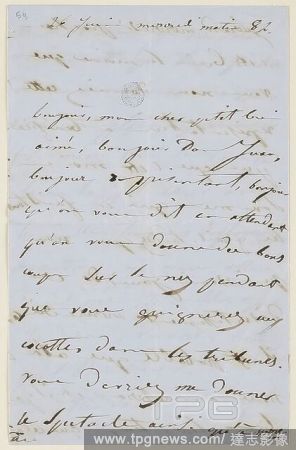 54
26 Juin mercredi matin 8h.
bonjour, mon cher petit bien
aimé, bonjour Don Juan,
bonjour représentant, bonjour
qu'on vous dit en attendant
qu'on vous donne des bons
coups sur le nez pendant
que vous guignerez aux
cocottes dans les tribunes.
vous devriez me donner
le spectacle
TPG
www.tpgnews.com / 達志影像